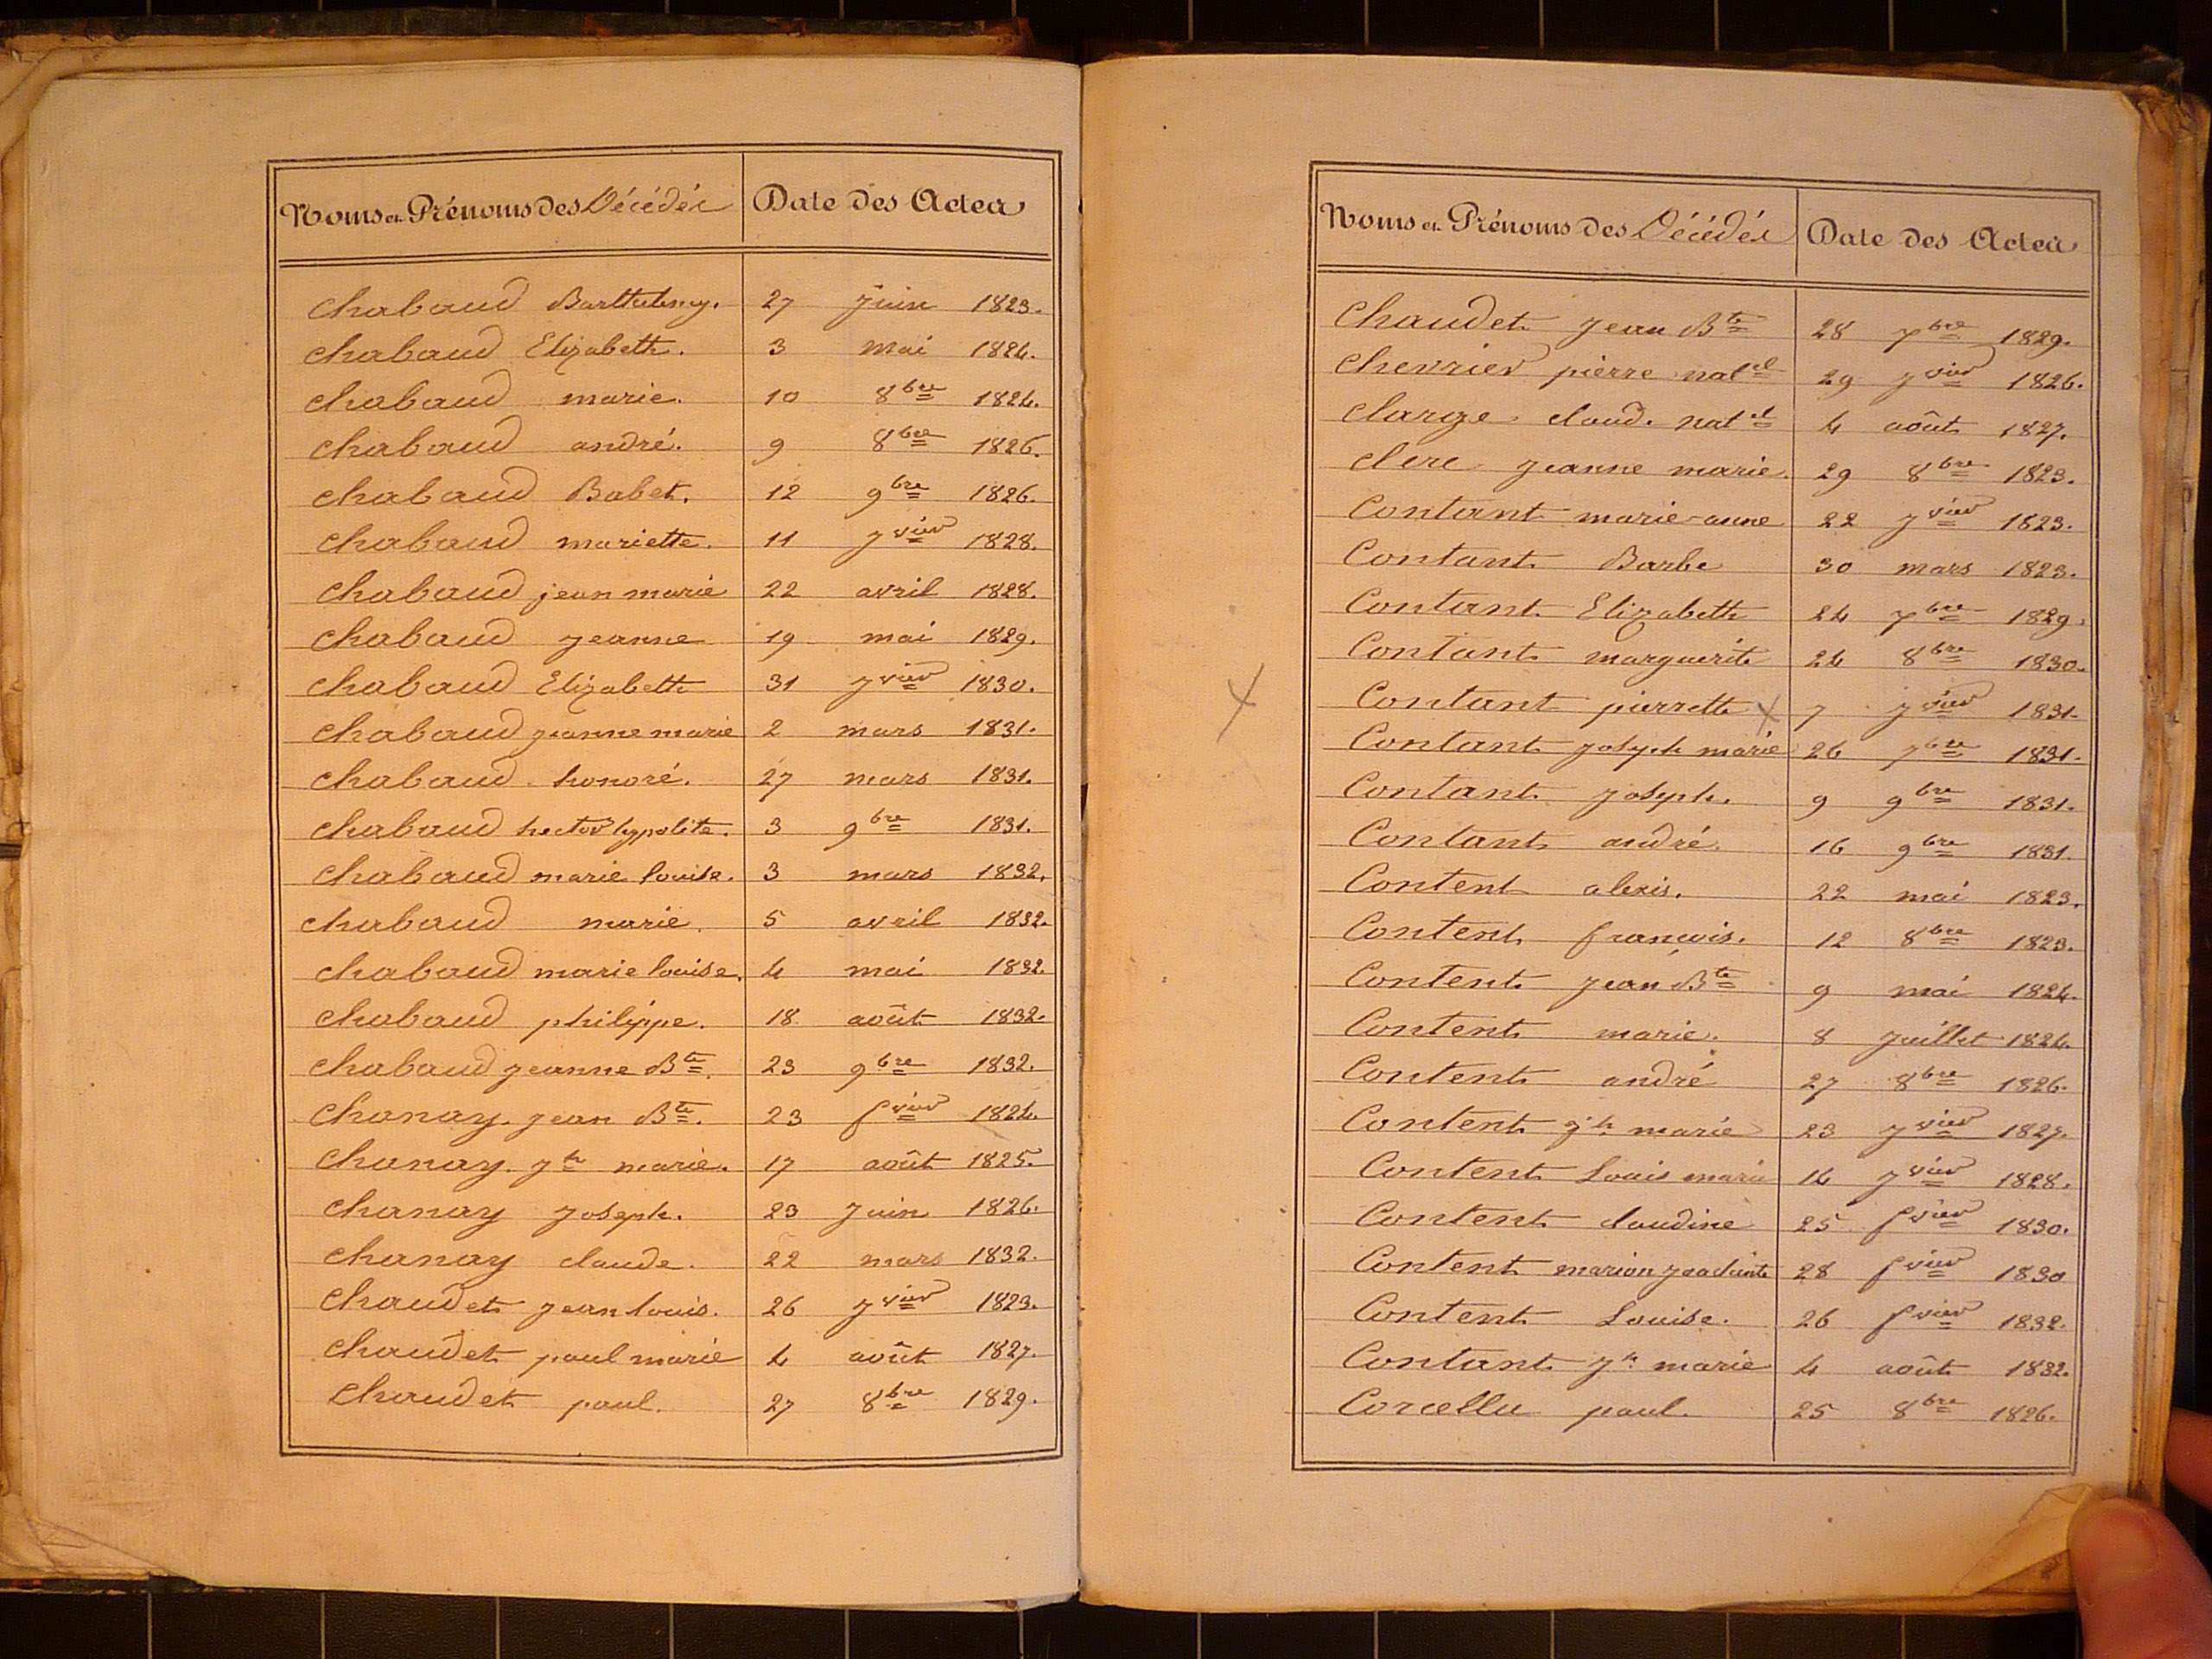 Noms et Prénoms des Décédés Date des Actes
Chabaud Barthelmy. 27 juin 1823.
Chabaud Elizabeth. 3 mai 1824.
Chabaud marie. 10 8bre 1824.
Chabaud andré. 9 8bre 1826.
Chabaud Babet. 12 9bre 1826.
Chabaud mariette. 11 jvier 1828.
Chabaud jean marie 22 avril 1828.
Chabaud jeanne 19 mai 1829.
Chabaud Elizabeth 31 jvier 1830.
Chabaud jeanne marie 2 mars 1831.
Chabaud honoré. 27 mars 1831.
Chabaud hector hypolite. 3 9bre 1831.
Chabaud marie louise. 3 mars 1832.
Chabaud marie. 5 avril 1832.
Chabaud marie louise. 4 mai 1832.
Chabaud philippe. 18 août 1832.
Chabaud jeanne Bte. 23 9bre 1832.
Chanay jean Bte. 23 fvier 1824.
Chanay jh marie. 17 août 1825.
Chanay joseph. 23 juin 1826.
Chanay claude. 22 mars 1832.
Chaudet jean louis. 26 jvier 1823.
Chaudet paul marie 4 août 1827.
Chaudet paul. 27 8bre 1829.
Noms et Prénoms des Décédés Date des Actes
Chaudet jean Bte 28 7bre 1829.
Chevrier pierre natel 29 jvier 1826.
Clarge claud. natel 4 août 1827.
Clerc jeanne marie. 29 8bre 1823.
Contant marie-anne 22 jvier 1823.
Contant Barbe 30 mars 1823.
Contant Elizabeth 24 7bre 1829.
Contant marguerite 24 8bre 1830.
Contant pierrette x 7 jvier 1831.
Contant joseph marie 26 7bre 1831.
Contant joseph. 9 9bre 1831.
Contant andré. 16 9bre 1831.
Content alexis. 22 mai 1823.
Content françois. 12 8bre 1823.
Content jean Bte 9 mai 1824.
Content marie. 8 juillet 1824.
Content andré 27 8bre 1826.
Content jh marie 23 jvier 1827.
Content Louis marie 14 jvier 1828.
Content claudine 25 fvier 1830.
Content marion 28 fvier 1830
Content Louise. 26 fvier 1832.
Contant jh marie 4 août 1832.
Corcellu paul. 25 8bre 1826.